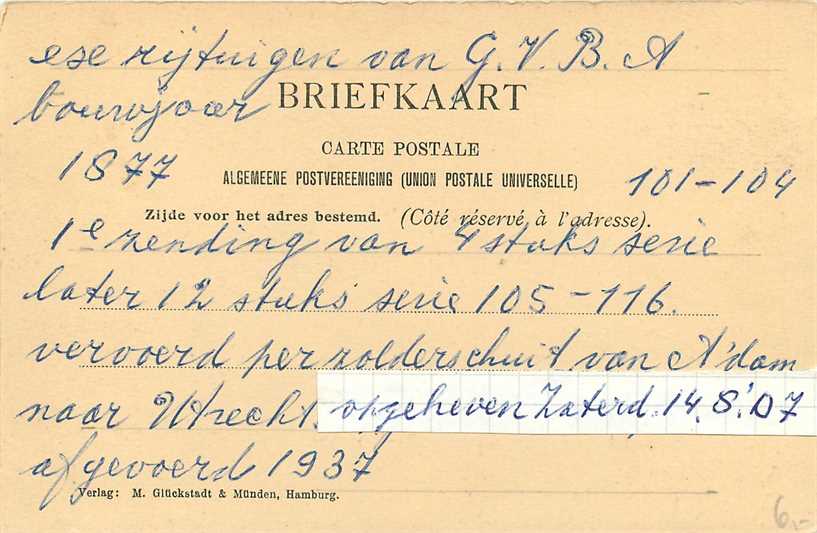 ese rijtuigen van G. V. B. A
bouwjaar
BRIEFKAART
CARTE POSTALE
1877
ALGEMEENE POSTVEREENIGING (UNION POSTALE UNIVERSELLE)
101-104
Zijde voor het adres bestemd. (Côté réservé à l'adresse).
1e zending van 4 stuks serie
later 12 stuks serie 105-116.
vervoerd per zolderschuit van A'dam
naar Utrecht. opgeheven Zaterd. 14. 8.' 07
afgevoerd 1937
Verlag: M. Glückstadt & Münden, Hamburg.
6,-